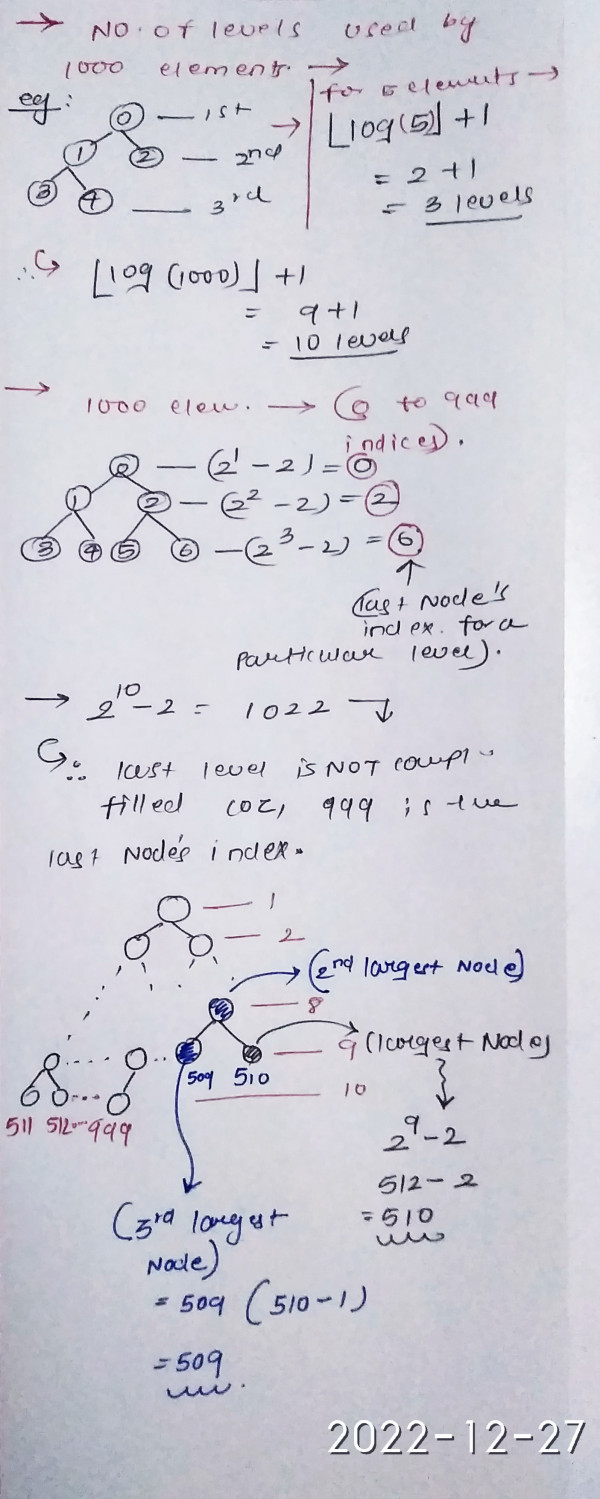 → No. of levels used by
1000 elements. →
eg:
0 — 1st
1 2 — 2nd
3 4 — 3rd
→ for 5 elements →
⌊log(5)⌋ + 1
= 2 + 1
= 3 levels
∴ ⌊log (1000)⌋ + 1
= 9 + 1
= 10 levels
→ 1000 elem. → (0 to 999
indices).
0 — (2^1 - 2) = 0
1 2 — (2^2 - 2) = 2
3 4 5 6 — (2^3 - 2) = 6
(last Node's
index. for a
particular level).
→ 2^10 - 2 = 1022
∴ last level is NOT compl.
filled coz, 999 is the
last Node's index.
— 1
— 2
(2nd largest Node)
— 8
— 9 (largest Node)
509 510
— 10
511 512 ... 999
2^9 - 2
512 - 2
= 510
(3rd largest
Node)
= 509 (510 - 1)
= 509
2022-12-27